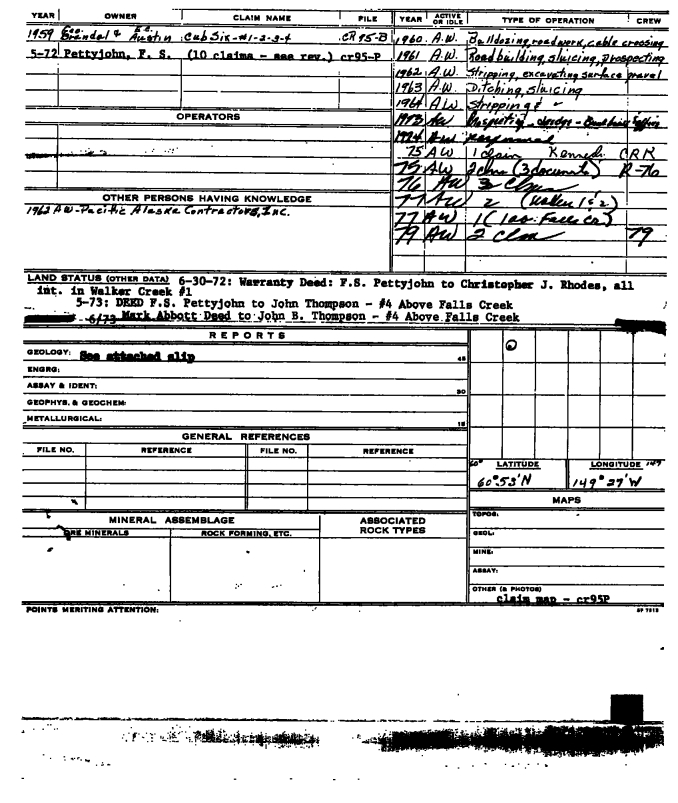 YEAR OWNER CLAIM NAME FILE YEAR ACTIVE OR IDLE TYPE OF OPERATION CREW
1959 Geo. Grendal & Ed. Austin Cub Six-#1-2-3-4 CR95-B
5-72 Pettyjohn, F. S. (10 claims - see rev.) cr95-P
1960 A.W. Bulldozing, roadwork, cable crossing
1961 A.W. Road building, sluicing, prospecting
1962 A.W. Stripping, excavating surface gravel
1963 A.W. Ditching, sluicing
1964 A.W. Stripping & "
1973 AW
1974 AW
75 AW 1 claim CRK
75 AW 2 clms (3 documents) R-76
76 AW 3 Clms
77 AW 2 (Walker 1 & 2)
77 AW 1 (100. Falls Cr)
79 AW 2 clm 79
OPERATORS
OTHER PERSONS HAVING KNOWLEDGE
1962 AW-Pacific Alaska Contractors, Inc.
LAND STATUS (OTHER DATA) 6-30-72: Warranty Deed: F.S. Pettyjohn to Christopher J. Rhodes, all
int. in Walker Creek #1
5-73: DEED F.S. Pettyjohn to John Thompson - #4 Above Falls Creek
6/73 Mark Abbott Deed to John B. Thompson - #4 Above Falls Creek
REPORTS
GEOLOGY: See attached slip 45
ENGRG:
ASSAY & IDENT: 30
GEOPHYS. & GEOCHEM:
METALLURGICAL: 15
GENERAL REFERENCES
FILE NO. REFERENCE FILE NO. REFERENCE
60° LATITUDE LONGITUDE 149
60°53'N 149°27'W
MAPS
TOPOS:
GEOL:
MINE:
ASSAY:
OTHER (& PHOTOS)
claim map - cr95P
MINERAL ASSEMBLAGE ASSOCIATED ROCK TYPES
ORE MINERALS ROCK FORMING, ETC.
POINTS MERITING ATTENTION: